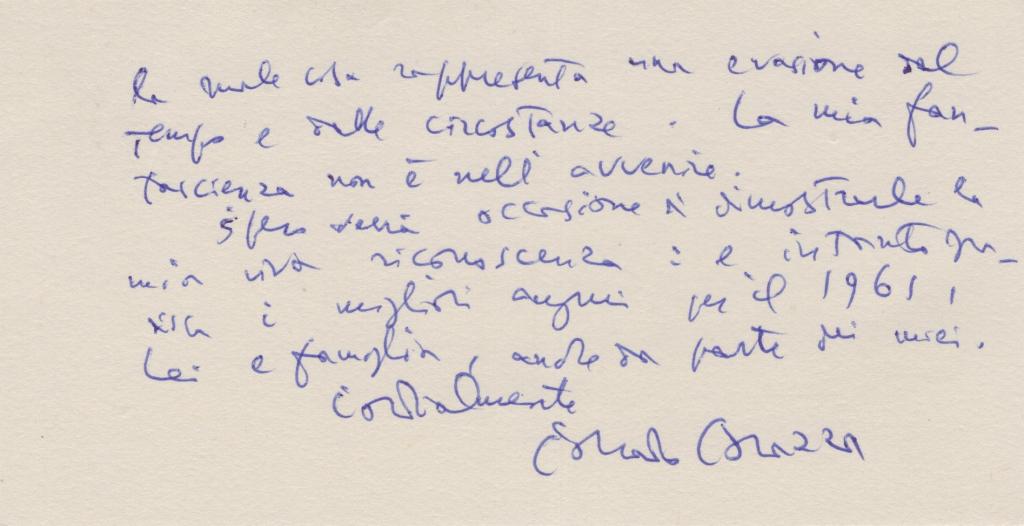 la quale cosa rappresenta una evasione dal
tempo e dalle circostanze. La mia fan-
tascienza non è nell'avvenire.
Spero avrà occasione di dimostrarle la
mia viva riconoscenza : e intanto gra-
disca i migliori auguri per il 1961,
Lei e famiglia, anche da parte dei miei.
Cordialmente
Corrado